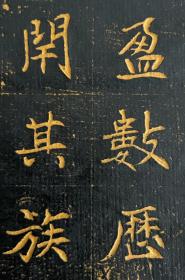 盈數歷
開其族